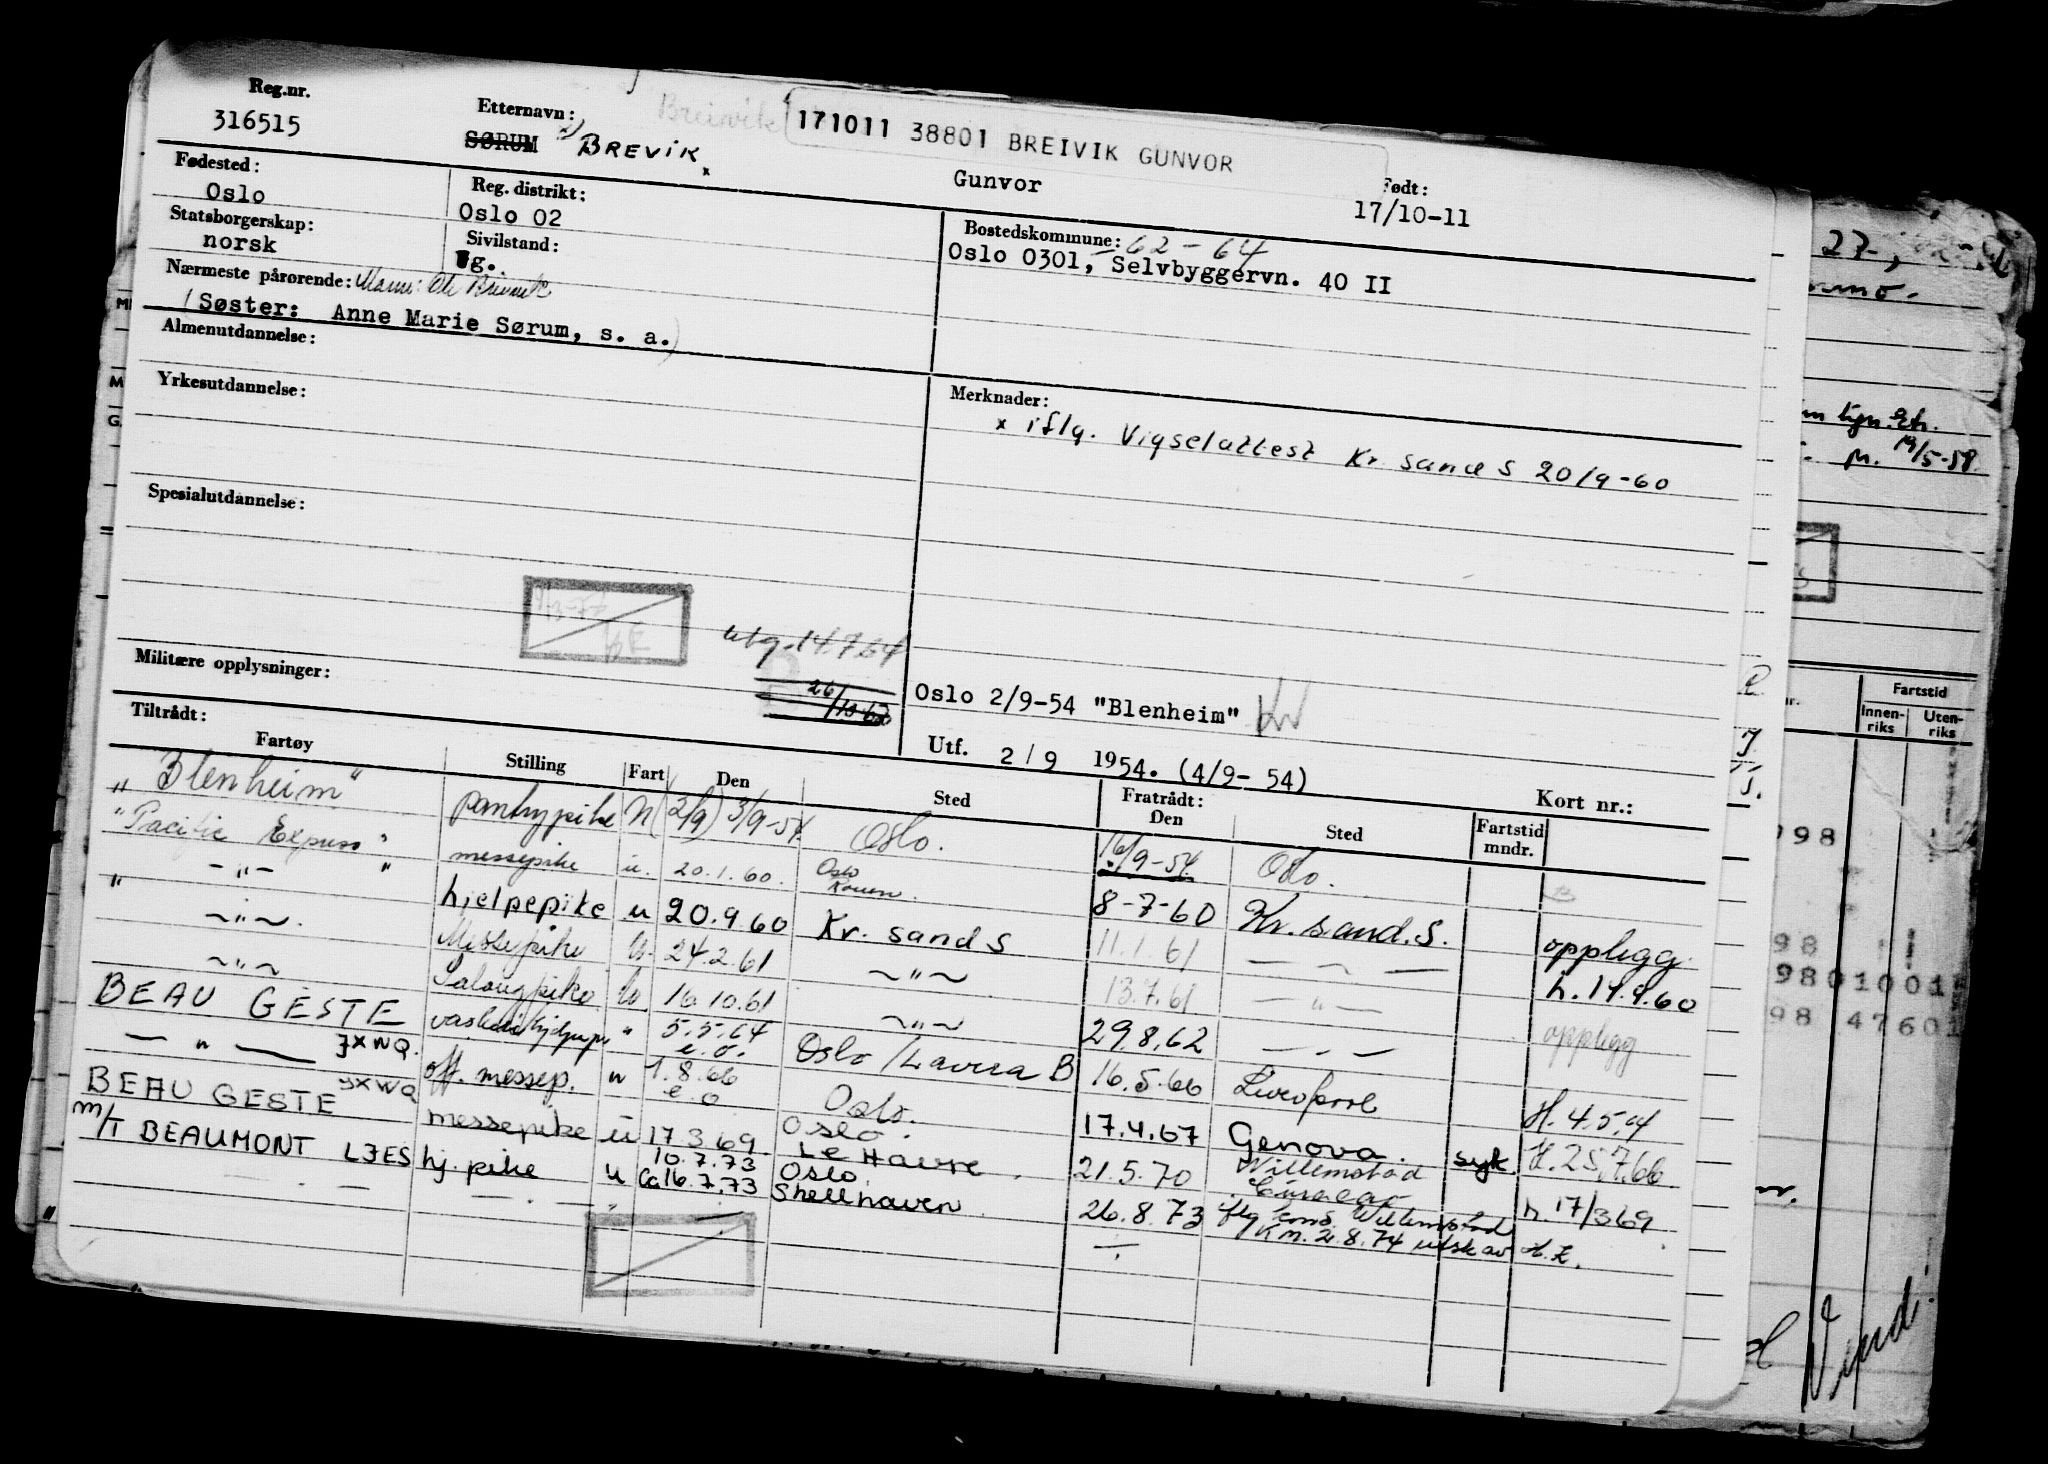 Reg.nr.
316515
Etternavn:
SØRUM BREVIK x
Breivik
171011 38801 BREIVIK GUNVOR
Gunvor
Født:
17/10-11
Fødested:
Oslo
Reg. distrikt:
Oslo 02
Bostedskommune: 62-64
Oslo 0301, Selvbyggervn. 40 II
Statsborgerskap:
norsk
Sivilstand:
g.
Nærmeste pårørende: Mann: Ole Brevik
(Søster: Anne Marie Sørum, s. a.)
Almenutdannelse:
Yrkesutdannelse:
Merknader:
x iflg. Vigselattest Kr. sand S 20/9-60
Spesialutdannelse:
utg. 14.7.64
26/10-62
Militære opplysninger:
Oslo 2/9-54 "Blenheim"
Utf. 2/9 1954. (4/9-54)
Kort nr.:
Tiltrådt:
Fartøy Stilling Fart Den Sted Fratrådt: Den Sted Fartstid mndr.
"Blenheim" pantrypike N (2/9) 3/9-54 Oslo. 16/9-54 Oslo.
"Pacific Express" messepike u. 20.1.60. Oslo Rouen. 8-7-60 Kr.sand.S. opplegg.
" -"- " hjelpepike u 20.9.60 Kr. sand S 11.1.61 — " — h.19.9.60
~"~. Messepike u. 24.2.61 ~"~ 13.7.61 — " — opplegg
~"~ Salongpike u 16.10.61 ~"~ 29.8.62 — . —
BEAU GESTE JXWQ. vaskeri hjelpep. " 5.5.64 e.o. Oslo/Lavera B 16.5.66 Liverpool H.4.5.64
— " — JXWQ off. messep. " 1.8.66 e.o Oslo. 17.4.67 Genova. syk. H.25.7.66
BEAU GESTE messepike u 17.3.69 Oslo. Le Havre. 21.5.70 Willemstad Curacao h.17/369
m/T BEAUMONT LJES hj. pike u 10.7.73 Ca16.7.73 Oslo Shellhaven 26.8.73 iflg kons. Willemstad
K.m. 2.8.74 utsk av H.Z.
27,
19/5-58
Fartstid
Innen-riks Uten-riks
98
98
9801001
98 4760